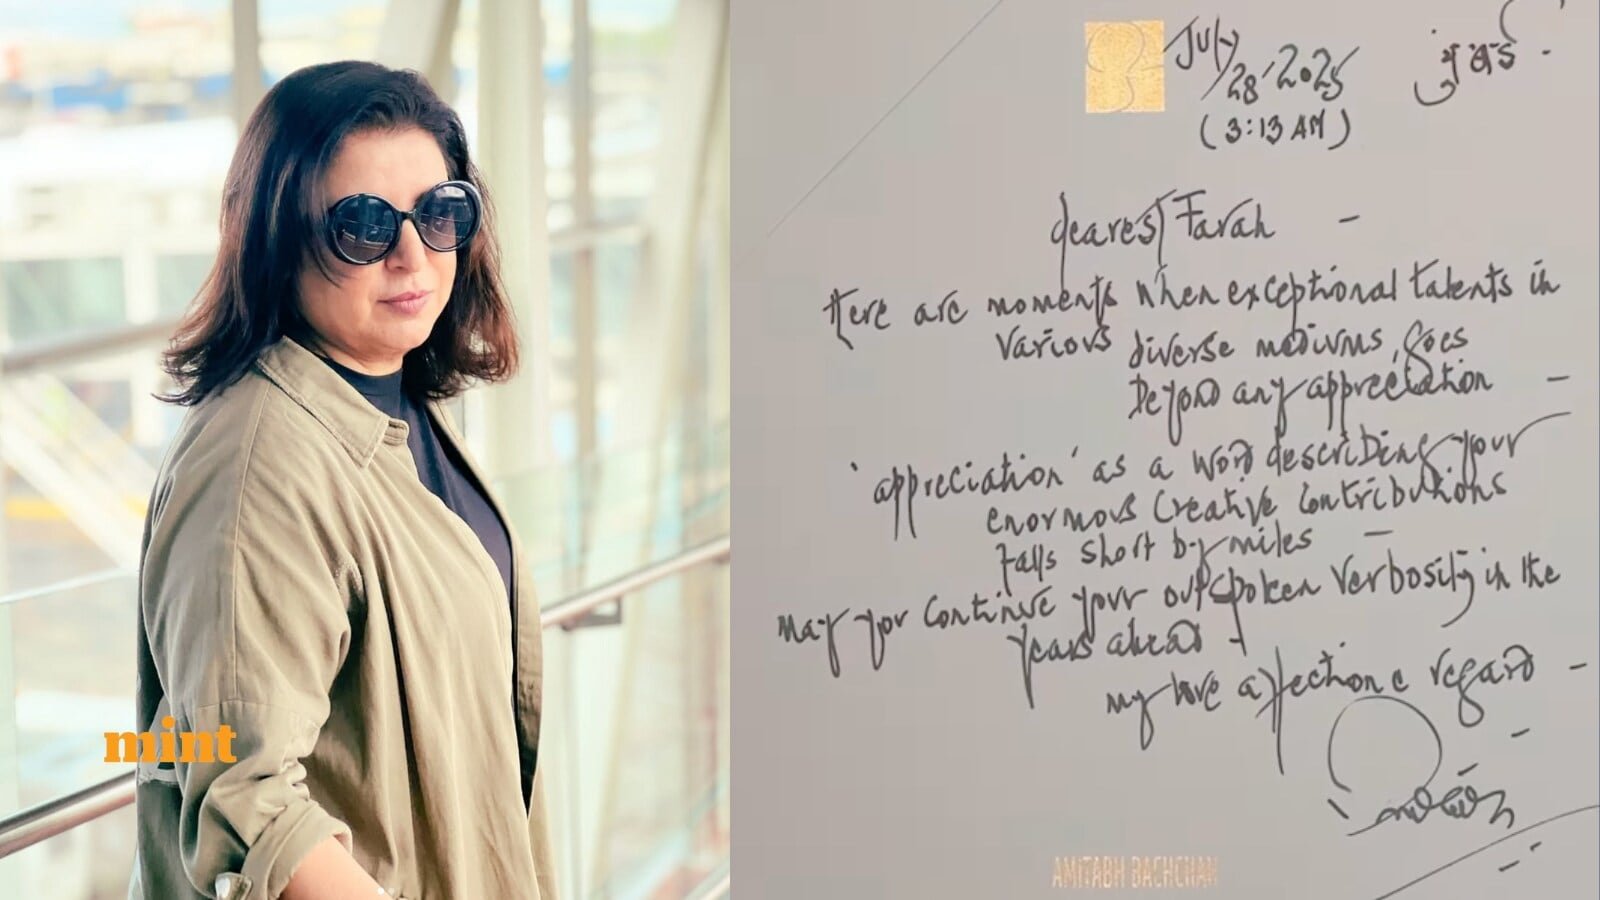 mint
July
28-2025 मुंबई -
(3:13 AM)
dearest Farah -
there are moments when exceptional talents in
various diverse mediums, goes
beyond any appreciation -
'appreciation' as a word describing your
enormous creative contributions
falls short by miles -
may you continue your outspoken verbosity in the
years ahead -
my love affection e regard -
AMITABH BACHCHAN